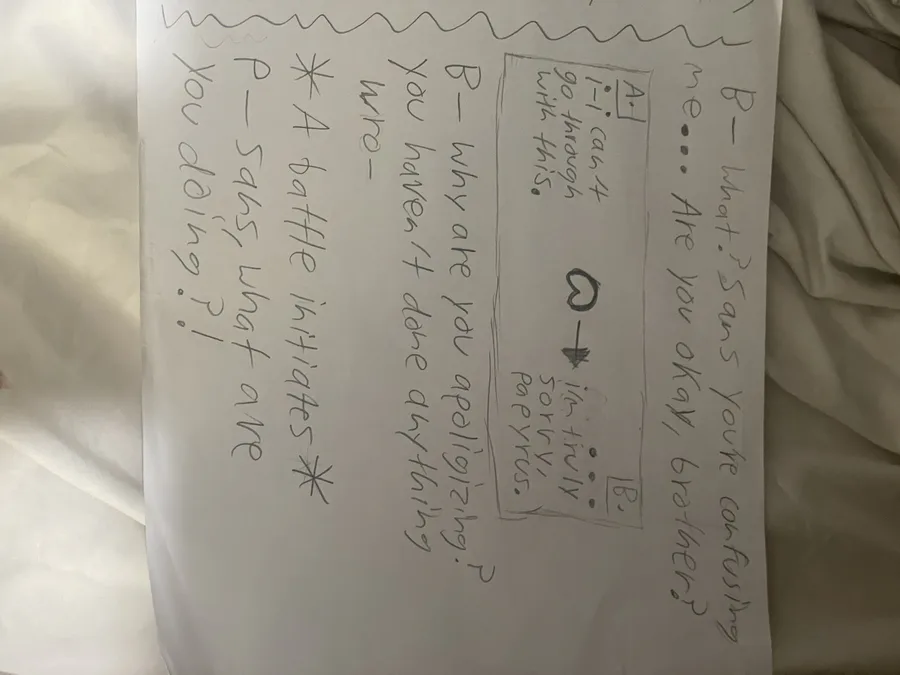 B— What? Sans you're confusing
me.... Are you okay, brother?
A.
i-i can't
go through
with this.
B.
...
i'm truly
sorry,
papyrus.
B— Why are you apoligizing?
You haven't done anything
wro-
*A battle initiates*
P— Sans, what are
you doing?!